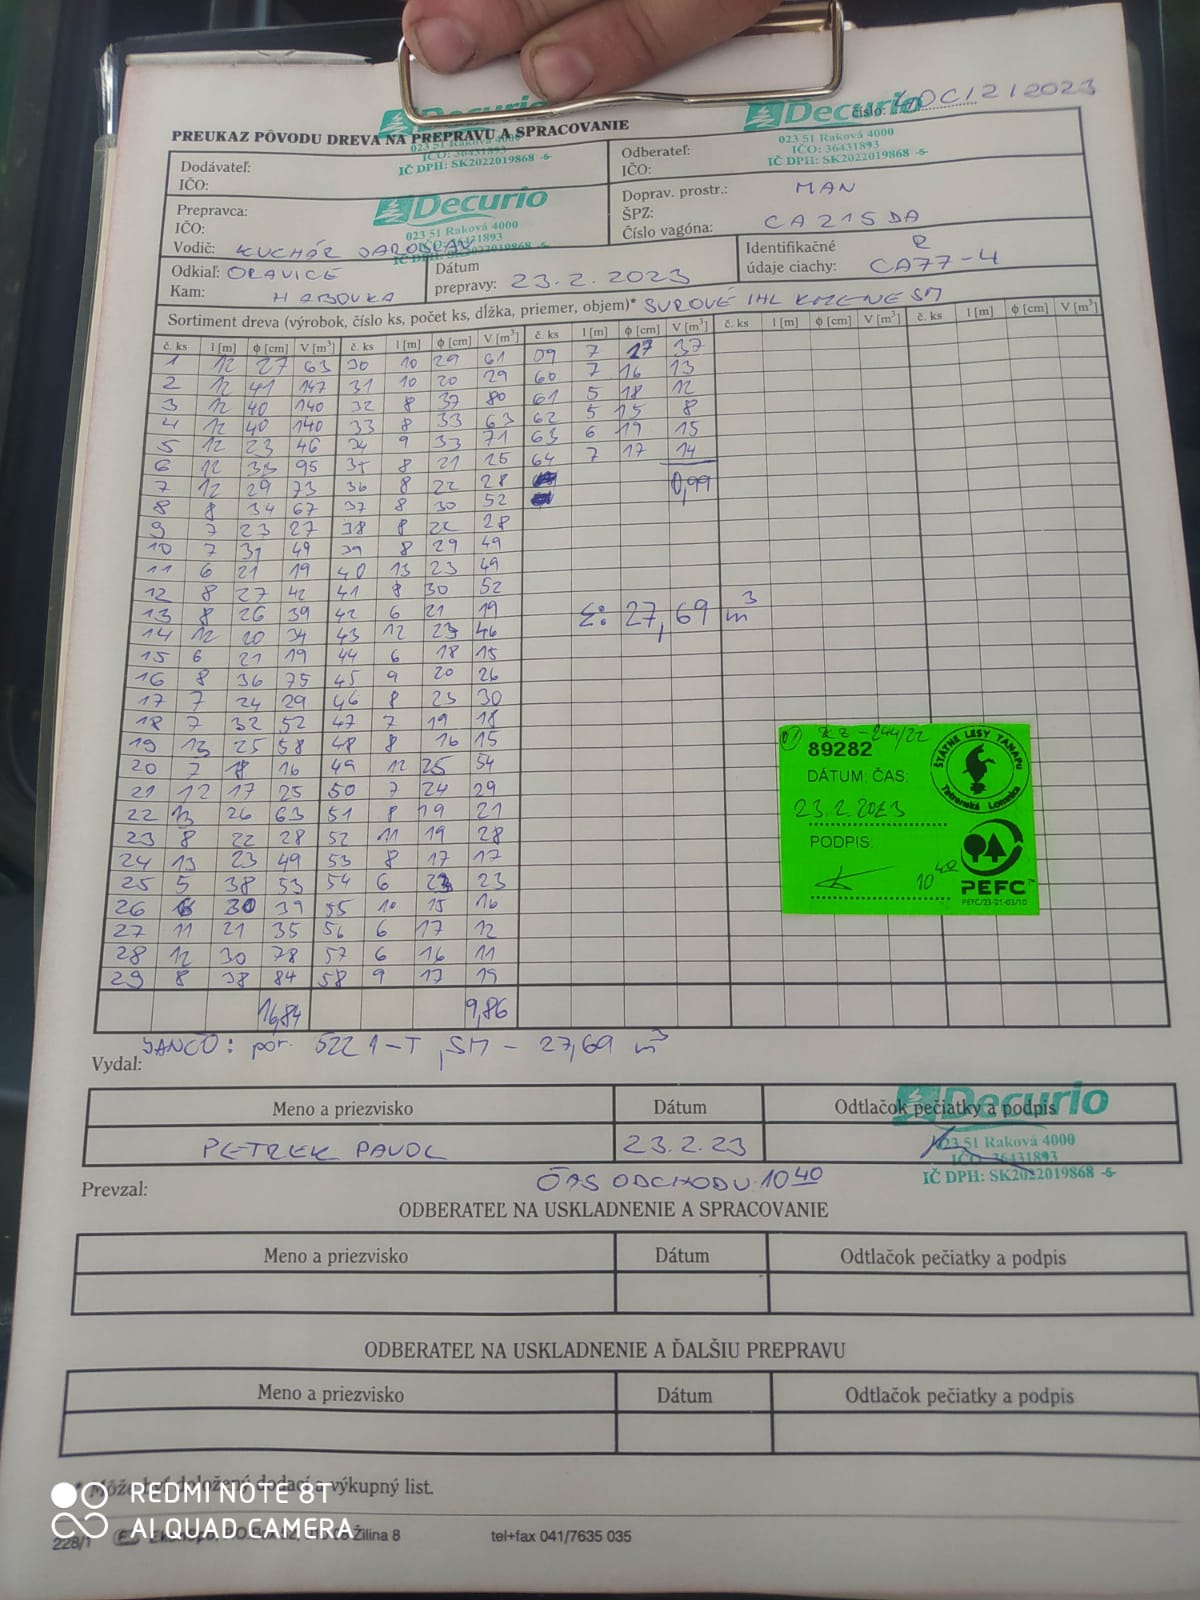 Decurio
Decurio
číslo: LDC/2/2023
PREUKAZ PÔVODU DREVA NA PREPRAVU A SPRACOVANIE
023 51 Raková 4000
IČO: 36431893
IČ DPH: SK2022019868 -5-
023 51 Raková 4000
IČO: 36431893
IČ DPH: SK2022019868 -5-
Dodávateľ:
IČO:
Odberateľ:
IČO:
Prepravca:
IČO:
Decurio
023 51 Raková 4000
IČO: 36431893
Vodič: KUCHÁR JAROSLAV
Doprav. prostr.: MAN
ŠPZ:
Číslo vagóna: CA215DA
Odkiaľ: ORAVICE
Kam: HABOVKA
Dátum
prepravy: 23.2.2023
Identifikačné R
údaje ciachy: CA77-4
Sortiment dreva (výrobok, číslo ks, počet ks, dĺžka, priemer, objem)* SUROVÉ IHL KMENE SM
č. ks l [m] ϕ [cm] V [m³] č. ks l [m] ϕ [cm] V [m³] č. ks l [m] ϕ [cm] V [m³] č. ks l [m] ϕ [cm] V [m³] č. ks l [m] ϕ [cm] V [m³]
1 12 27 63 30 10 29 61 59 7 17 37
2 12 41 147 31 10 20 29 60 7 16 13
3 12 40 140 32 8 37 80 61 5 18 12
4 12 40 140 33 8 33 63 62 5 15 8
5 12 23 46 34 9 33 71 63 6 19 15
6 12 33 95 35 8 21 25 64 7 17 14
7 12 29 73 36 8 22 28 0,99
8 8 34 67 37 8 30 52
9 7 23 27 38 8 22 28
10 7 31 49 39 8 29 49
11 6 21 19 40 13 23 49
12 8 27 42 41 8 30 52
13 8 26 39 42 6 21 19 Σ: 27,69 m³
14 12 20 34 43 12 23 46
15 6 21 19 44 6 18 15
16 8 36 75 45 9 20 26
17 7 24 29 46 8 23 30
18 7 32 52 47 7 19 18
19 13 25 58 48 8 16 15
20 7 18 16 49 12 25 54
21 12 17 25 50 7 24 29
22 13 26 63 51 8 19 21
23 8 22 28 52 11 19 28
24 13 23 49 53 8 17 17
25 5 38 53 54 6 23 23
26 6 30 39 55 10 15 16
27 11 21 35 56 6 17 12
28 12 30 78 57 6 16 11
29 8 38 84 58 9 17 19
16,84 9,86
244/22
89282
DÁTUM: ČAS:
23.2.2023
PODPIS:
10 40
ŠTÁTNE LESY TANAPu
Tatranská Lomnica
PEFC™
PEFC/23-21-03/10
JANČO: por. 522 1-T, SM - 27,69 m³
Vydal:
Meno a priezvisko Dátum Odtlačok pečiatky a podpis
Decurio
PETREK PAVOL 23.2.23
023 51 Raková 4000
IČO: 36431893
IČ DPH: SK2022019868 -5-
Prevzal:
ČAS ODCHODU 10 40
ODBERATEĽ NA USKLADNENIE A SPRACOVANIE
Meno a priezvisko Dátum Odtlačok pečiatky a podpis
ODBERATEĽ NA USKLADNENIE A ĎALŠIU PREPRAVU
Meno a priezvisko Dátum Odtlačok pečiatky a podpis
* Môže byť doložený dodací a výkupný list.
REDMI NOTE 8T
AI QUAD CAMERA
228/1 Žilina 8 tel+fax 041/7635 035